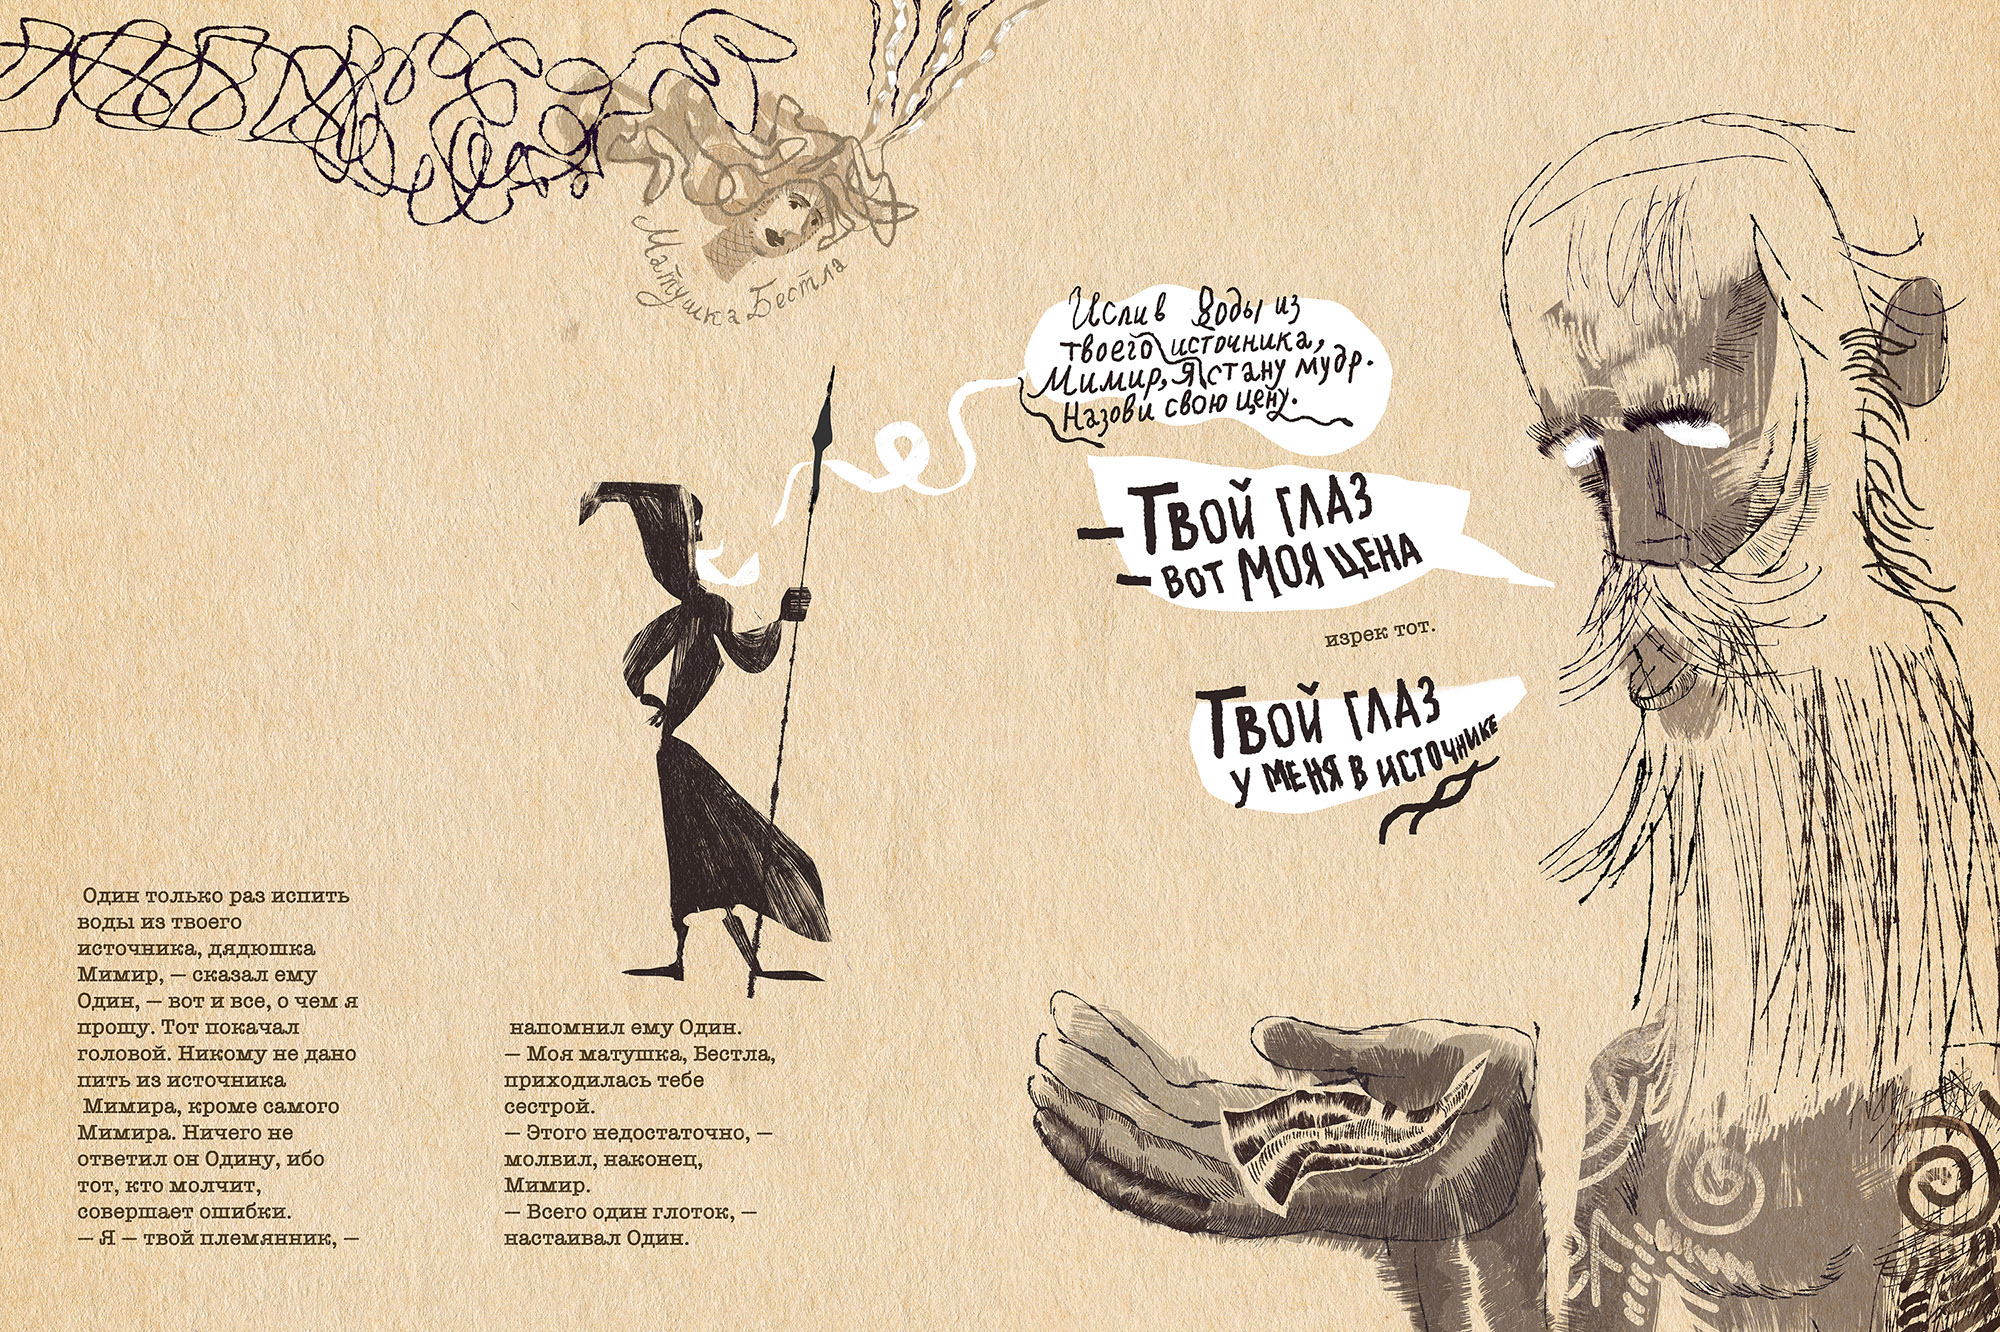 Матушка Бестла
Один только раз испить
воды из твоего
источника, дядюшка
Мимир, — сказал ему
Один, — вот и все, о чем я
прошу. Тот покачал
головой. Никому не дано
пить из источника
Мимира, кроме самого
Мимира. Ничего не
ответил он Одину, ибо
тот, кто молчит,
совершает ошибки.
— Я — твой племянник, —
напомнил ему Один.
— Моя матушка, Бестла,
приходилась тебе
сестрой.
— Этого недостаточно, —
молвил, наконец,
Мимир.
— Всего один глоток, —
настаивал Один.
Испив воды из
твоего источника,
Мимир, я стану мудр.
Назови свою цену.
— Твой глаз
— вот моя цена
изрек тот.
Твой глаз
у меня в источнике